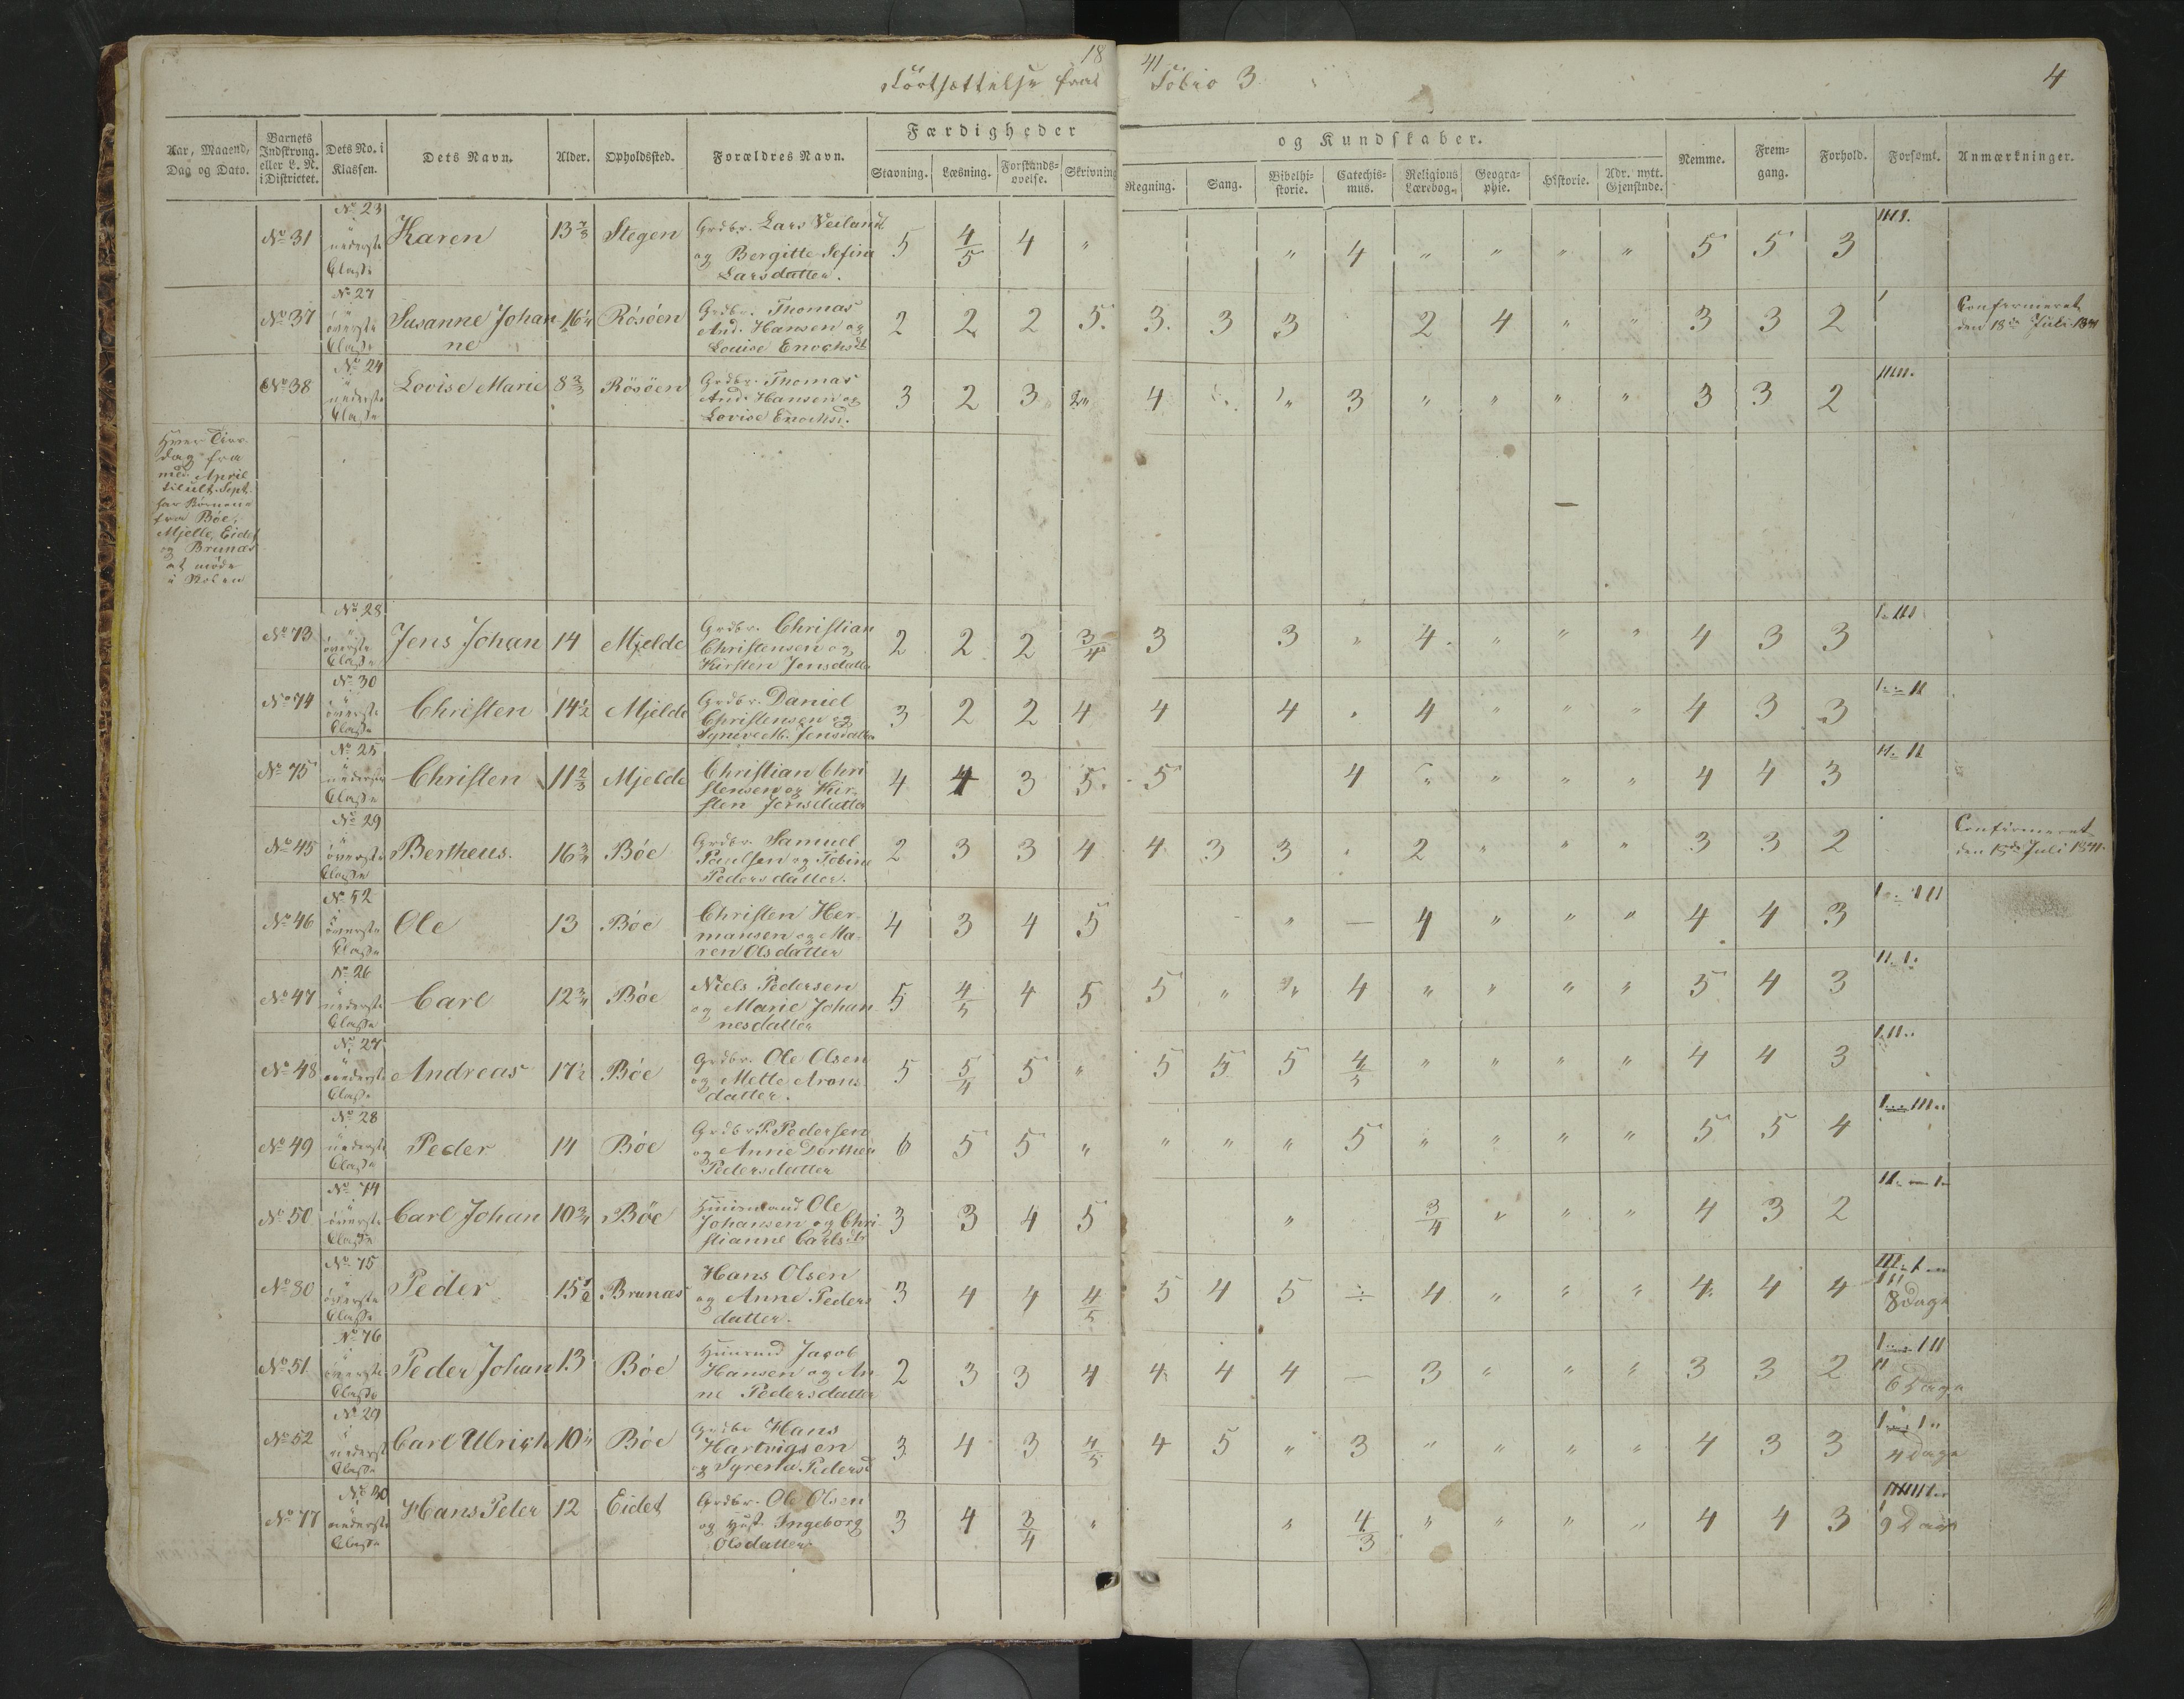 18
41
Fortsættelse fra
Folio 3
4
Færdigheder
og Kundskaber.
Aar, Maaned, Dag og Dato.
Barnets Indskrvng. eller L. N. i Districtet.
Dets No. i Klassen.
Dets Navn.
Alder.
Opholdssted.
Forældres Navn.
Stavning.
Læsning.
Forstands-ovelse.
Skrivning
Regning.
Sang.
Bibelhi-storie.
Catechis-mus.
Religions Lærebog.
Geogra-phie.
Historie.
Adr. nytt. Gjenstnde.
Nemme.
Frem-gang.
Forhold.
Forsømt.
Anmærkninger.
No 31 No 23 i nederste Classe Karen 13 2/3 Stegen Grdbr. Lars Veiland og Bergitte Larsdatter. 5 4/5 4 " " 4 " " " " 5 5 3 IIII.
No 37 No 27 i øverste Classe Susanne Johanne 16 1/4 Røsøen Grdbr. Thomas And. Hansen og Louise Enochsdt 2 2 2 5. 3. 3 3 2 4 " " 3 3 2 I Confirmeret den 18de Juli 1841
No 38 No 24 i nederste Classe Lovise Marie 8 2/3 Røsöen Grdbr. Thomas And. Hansen og Lovise Enochsd. 3 2 3 4 " 3 " " " " 3 3 2 IIIII.
Hver
dag fra
April
til ult. Sept.
har Børnene
fra Bøe,
Mjelle, Eidet
og Brunæs
at møde
i Skolen
No 73 No 28 i øverste Classe Jens Johan 14 Mjelde Grdbr. Christian Christensen og Kirsten Jensdatter 2 2 2 3/4 3 3 " 4. " " " 4 3 3
No 74 No 30 i øverste Classe Christen 14 1/2 Mjelde Grdbr. Daniel Christensen og M. Jensdatter 3 2 2 4 4 4 " 4 " " " 4 3 3
No 75 No 25 i nederste Classe Christen 11 2/3 Mjelde Christian Christensen og Kirsten Jensdatter 4 4 3 5. 5 4 " " " " 4 4 3
No 45 No 29 i øverste Classe Bertheus. 16 3/4 Bøe Grdbr. Samuel Paulsen og Tobine Pedersdatter. 2 3 3 4 4 3 3 " 2 " " " 3 3 2 Confirmeret den 18de Juli 1841.
No 46 No 52 i øverste Classe Ole 13 Bøe Christen Hermansen og Maren Olsdatter 4 3 4 5 " — 4 " " " 4 4 3
No 47 No 26 i nederste Classe Carl 12 3/4 Bøe Niels Pedersen og Marie Johannesdatter 5 4/5 4 5 5 " " 4 " " " " 5 4 3
No 48 No 27 i nederste Classe Andreas 17 1/2 Bøe Grdbr. Ole Olsen og Mette Aronsdatter. 5 5/4 5 " 5 5 5 4/5 " " " " 4 4 3
No 49 No 28 i nederste Classe Peder 14 Bøe Grdbr P. Pedersen og Anne Dorthea Pedersdatter 6 5 5 " " " " 5 " " " " 5 5 4
No 50 No 74 i øverste Classe Carl Johan 10 3/4 Bøe Huusmand Ole Johansen og Christianne Carlsdtr 3 3 4 5 " 3/4 " " " 4 3 2
No 80 No 75 i øverste Classe Peder 15 1/2 Brunæs Hans Olsen og Anne Pedersdatter. 3 4 4 4/5 5 4 5 ÷ 4 " " " 4. 4 4 8 Dage
No 51 No 76 i øverste Classe Peder Johan 13 Bøe Jacob Hansen og Anne Pedersdatter 2 3 3 4 4 4 4 — 3 " " " 3 3 2 6 Dage
No 52 No 29 i nederste Classe Carl Ulrich 10 1/4 Bøe Grdbr Hans Hartvigsen og Pedersd 3 4 3 4/5 4 5 " 3 " " " " 4 3 3 4 Dage
No 77 No 30 i nederste Classe Hans Peter 12 Eidet Grdbr. Ole Olsen og Hust. Ingeborg Olsdatter 3 4 3/4 " " 4/3 " " " " 4 4 3 9 Dage